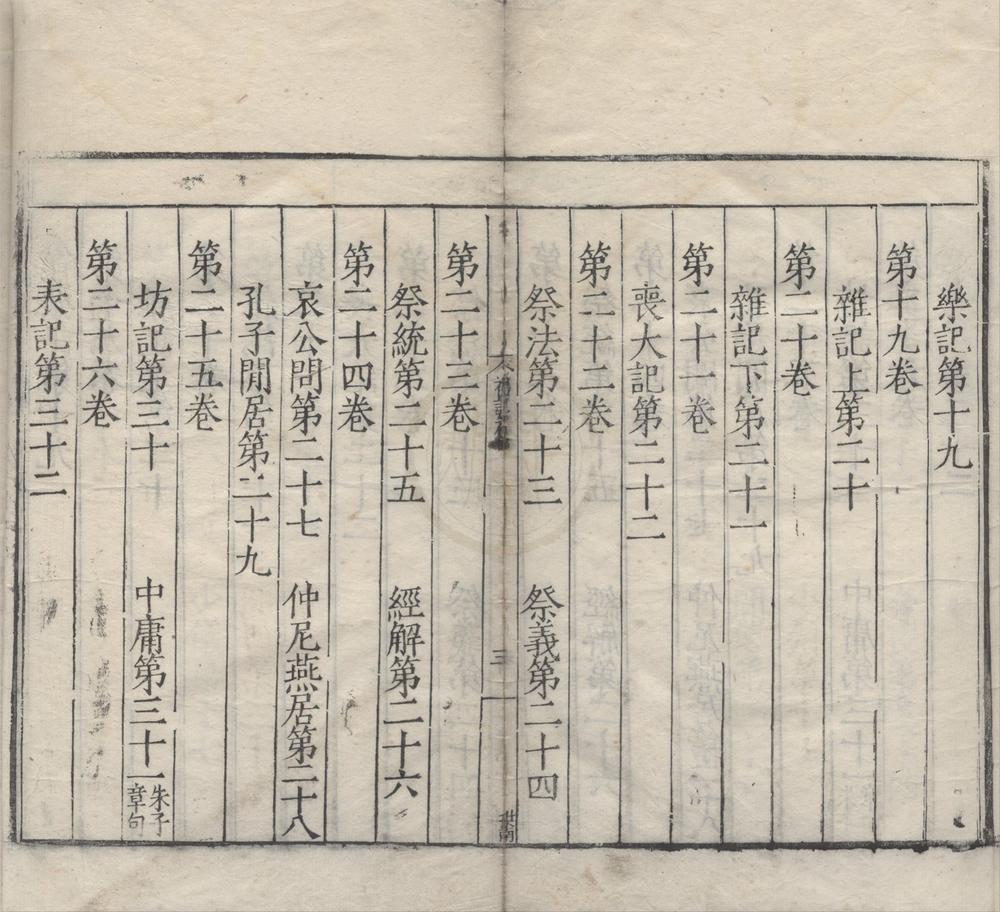 樂記第十九
第十九卷
雜記上第二十
第二十卷
雜記下第二十一
第二十一卷
喪大記第二十二
第二十二卷
祭法第二十三　祭義第二十四
三
第二十三卷
祭統第二十五　經解第二十六
第二十四卷
哀公問第二十七　仲尼燕居第二十八
孔子閒居第二十九
第二十五卷
坊記第三十　中庸第三十一朱子章句
第二十六卷
表記第三十二